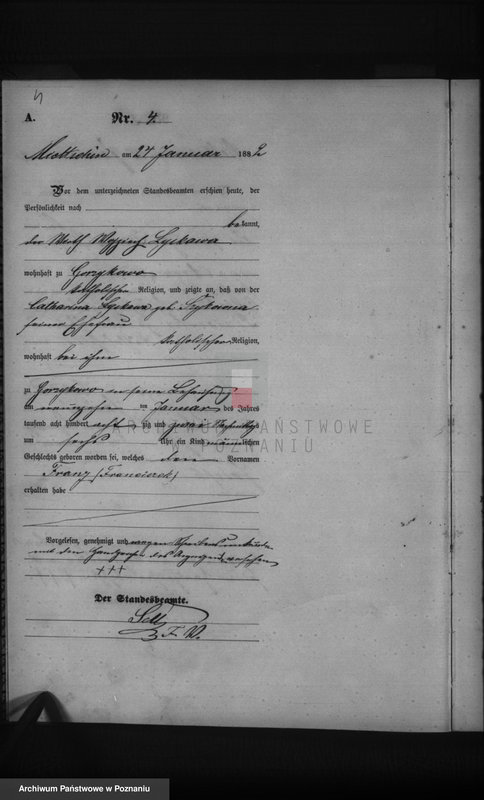 4
A. Nr. 4.
am 27 Januar 1882
Vor dem unterzeichneten Standesbeamten erschien heute, der
Persönlichkeit nach
bekannt,
der Wirth Wojciech
wohnhaft zu Gorzykowo
katholischer Religion, und zeigte an, daß von der
Catharina geb.
seiner Ehefrau
katholischer Religion,
wohnhaft bei ihm
zu Gorzykowo in seiner Behausung
am Januar des Jahres
tausend acht hundert achtzig und zwei Nachmittags
um sechs Uhr ein Kind männlichen
Geschlechts geboren worden sei, welches den Vornamen
Franz (Franciszek)
erhalten habe
Vorgelesen, genehmigt und wegen Schreibensunkunde
mit den Handzeichen des Anzeigenden versehen
+++
Der Standesbeamte.
ARCHIWUM PAŃSTWOWE
POZNANIU
Archiwum Państwowe w Poznaniu